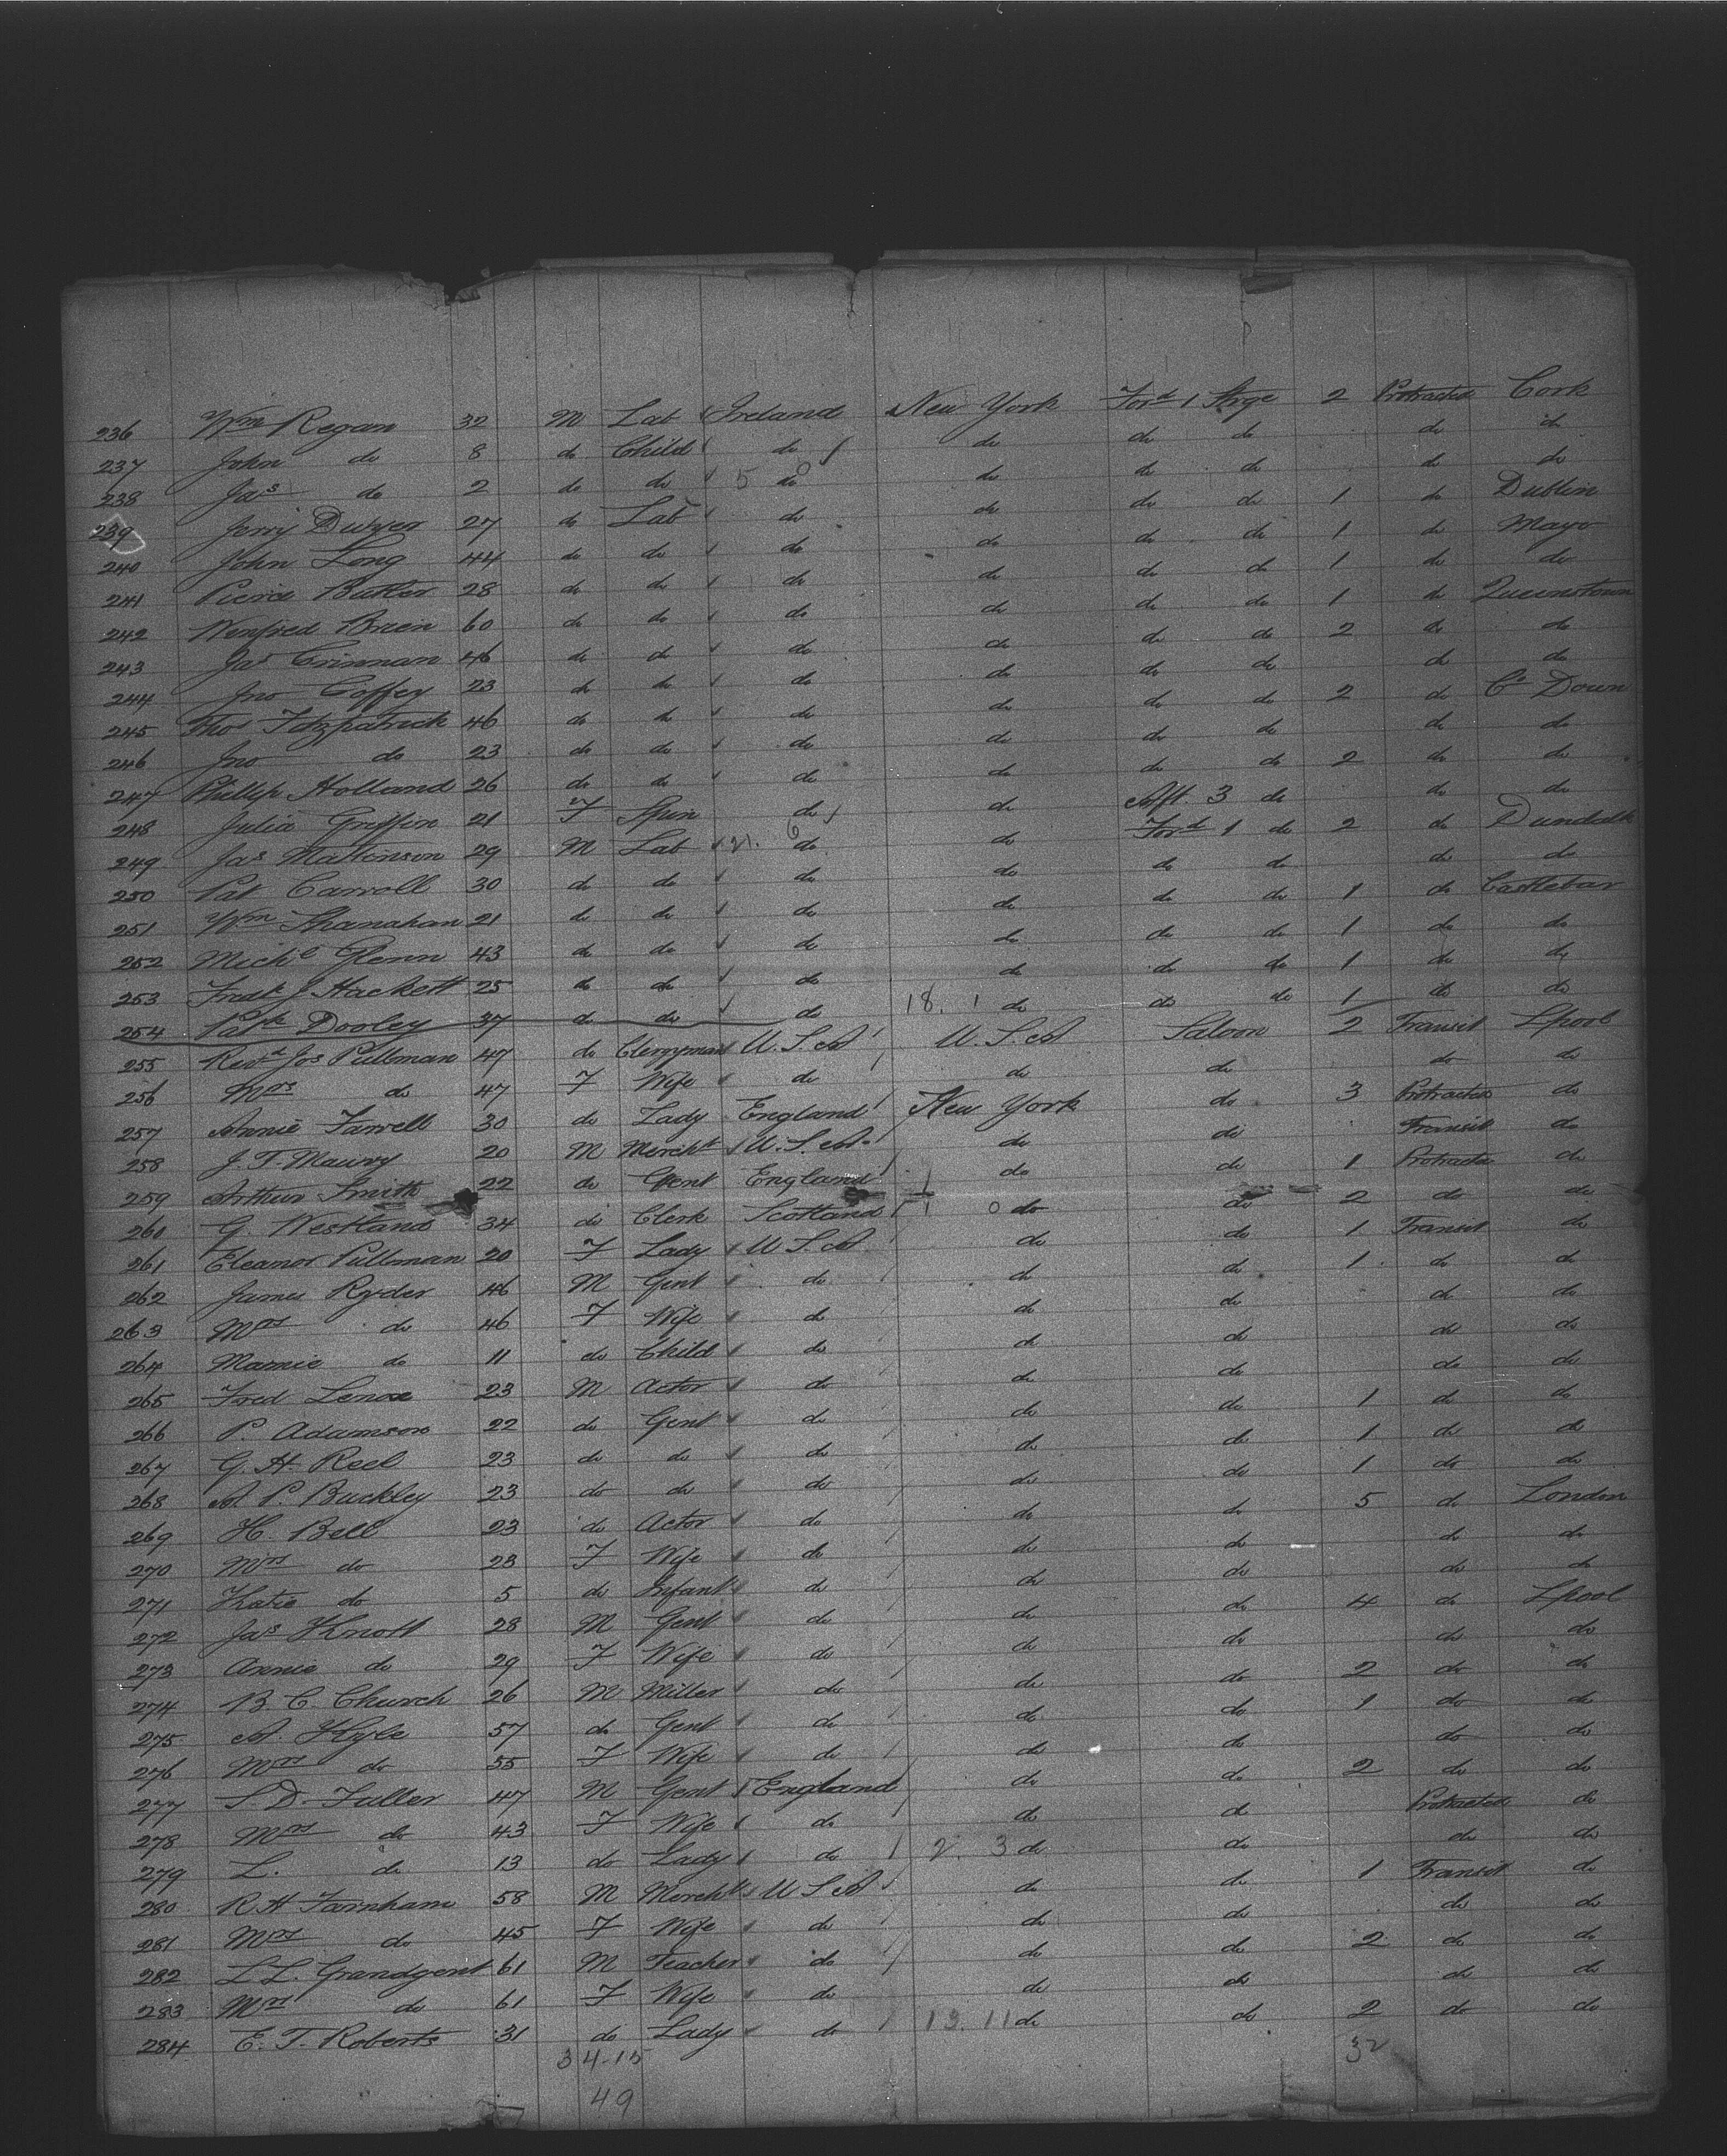 236 Wm Regan 32 M Lab Ireland New York Ford 1 Strge 2 Protracted Cork
237 John do 8 do Child do do do do do do
238 Jas do 2 do do 5 do do do do do do
239 Jerry Dwyer 27 do Lab do do do do 1 do Dublin
240 John Long 44 do do do do do do 1 do Mayo
241 Pierce Butler 28 do do do do do do 1 do do
242 Winfred Breen 60 do do do do do do 1 do Queenstown
243 Jas Crinnan 46 do do do do do do 2 do do
244 Jno Coffey 23 do do do do do do do do
245 Thos Fitzpatrick 46 do do do do do do 2 do Co Down
246 Jno do 23 do do do do do do do do
247 Phillip Holland 26 do do do do do do 2 do do
248 Julia Griffin 21 F Spin do do Aft 3 do do do
249 Jas Matkinson 29 M Lab 21. 6 do do Ford 1 do 2 do Dundalk
250 Pat Carroll 30 do do do do do do do do
251 Wm Shanahan 21 do do do do do do 1 do Castlebar
252 Michl Glenn 43 do do do do do do 1 do do
253 Fredk J Hackett 25 do do do do do do 1 do do
254 Patk Dooley 37 do do do 18. 1 do do do 1 do do
255 Revd Jos Pullman 47 do Clergyman U.S.A U.S.A Saloon 2 Transit Lpool
256 Mrs do 47 F Wife do do do do do
257 Annie Farrell 30 do Lady England New York do 3 Protracted do
258 J. T. Maury 20 M Mercht U.S.A. do do Transit do
259 Arthur Smith 22 do Gent England do do 1 Protracted do
260 G. Westland 34 do Clerk Scotland 1 0 do do 2 do do
261 Eleanor Pullman 20 F Lady U.S.A. do do 1 Transit do
262 James Ryder 46 M Gent do do do 1 do do
263 Mrs do 46 F Wife do do do do do
264 Mamie do 11 do Child do do do do do
265 Fred Lenox 23 M Actor do do do do do
266 P. Adamson 22 do Gent do do do 1 do do
267 G. H. Reel 23 do do do do do 1 do do
268 A P. Buckley 23 do do do do do 1 do do
269 H. Bell 23 do Actor do do do 5 do London
270 Mrs do 23 F Wife do do do do do
271 Katie do 5 do Infant do do do do do
272 Jas Knott 28 M Gent do do do 4 do Lpool
273 Annie do 29 F Wife do do do do do
274 B. C. Church 26 M Miller do do do 2 do do
275 A. Kyle 57 do Gent do do do 1 do do
276 Mrs do 55 F Wife do do do do do
277 S. D. Fuller 47 M Gent England do do 2 do do
278 Mrs do 43 F Wife do do do Protracted do
279 L. do 13 do Lady do 2. 3 do do do do
280 R. H Farnham 58 M Mercht U S A do do 1 Transit do
281 Mrs do 45 F Wife do do do do do
282 L L. Grandgent 61 M Teacher do do do 2 do do
283 Mrs do 61 F Wife do do do do do
284 E. T. Roberts 31 do Lady do 13. 11 do do 2 do do
34-15 32
49